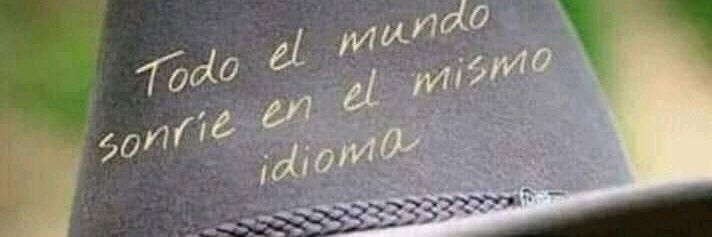 Todo el mundo
sonrie en el mismo
idioma